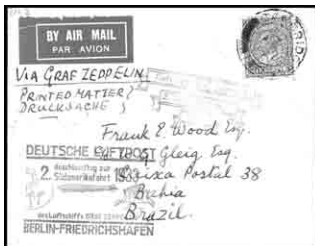 BY AIR MAIL
PAR AVION
VIA GRAF ZEPPELIN
PRINTED MATTER
DRUCKSACHE
Frank E. Wood Esq.
Gleig Esq.
Caixa Postal 38
Bahia
Brazil.
DEUTSCHE LUFTPOST
2. Anschlußflug zur
Südamerikafahrt 1933
des Luftschiffs GRAF ZEPPELIN
BERLIN-FRIEDRICHSHAFEN